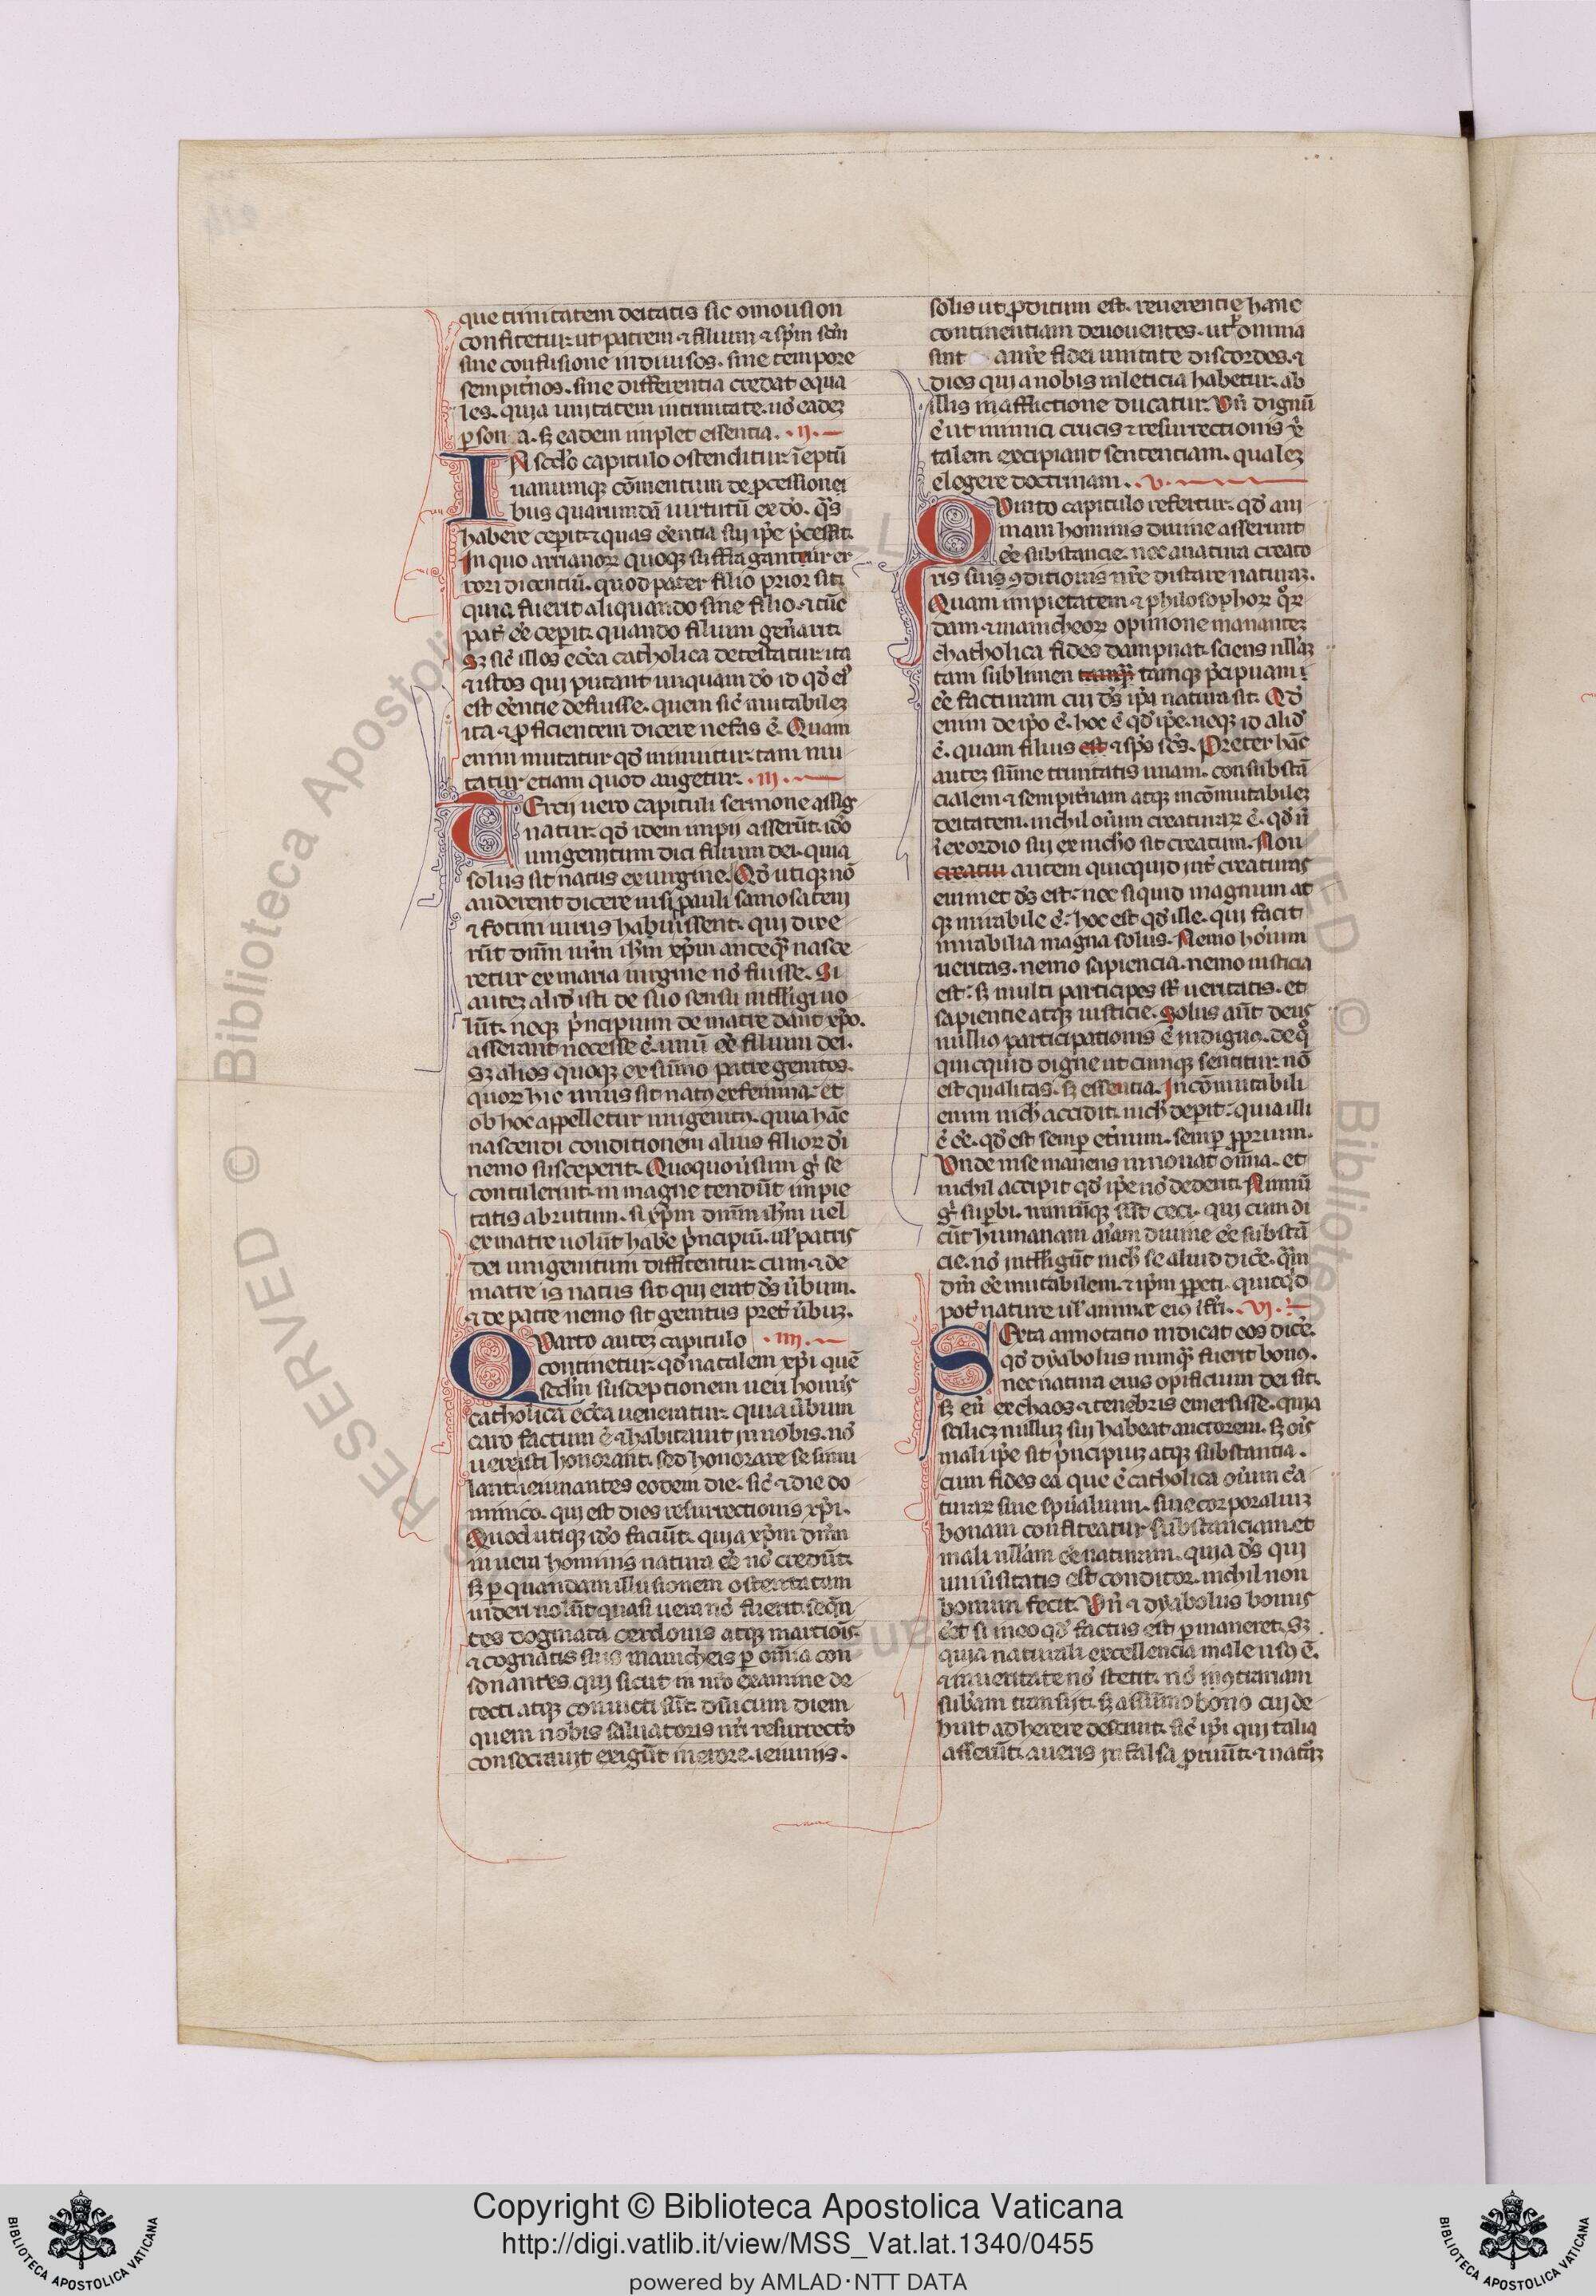 que trinitatem deitatis sic omousion
confitetur ut patrem ⁊ filium ⁊ sp̄m sc̄m
sine confusione indiuisos. sine tempore
sempit̄nos. sine differentia credat equa
les. quia unitatem in trinitate. nō eadeꝫ
ꝑsona. sꝫ eadem implet essentia. .ij.
IN scd̄o capitulo ostenditur ineptū
uanumqꝫ cōmentum de ꝓcessioni
bus quarumdā uirtutū ex dō. q̄s
habere ceperit ⁊ quas eēntia sui ip̄e p̄cessit.
In quo arrianoꝝ quoqꝫ suffragantur er
rori dicentiū. quod pater filio prior sit
quia fuerit aliquando sine filio. ⁊ tūc
pat̄ eē cepit. quando filium genuit.
Sꝫ sic̄ illos ecc̄a catholica detestatur ita
⁊ istos qui putant unquam dō id qd̄ ei᷒
est eēntie defuisse. quem sic̄ mutabileꝫ
ita ⁊ ꝓficientem dicere nefas ē. Quam
enim mutatur qd̄ minuitur. tam mu
tatur etiam quod augetur. .iij.
TErcij uero capituli sermone assig
natur qd̄ idem impij asserūt. idō
unigenitum dici filium dei. quia
solus sit natus ex uirgine. Qd̄ utiqꝫ nō
auderent dicere nisi pauli samosateni
⁊ fotini uirus habuissent. qui dixe
rūt dn̄m nr̄m ih̄m xp̄m anteq̄ꝫ nasce
retur ex maria uirgine nō fuisse. Si
auteꝫ alid̄ isti de suo sensu intelligi uo
lūt. neqꝫ p̄ncipium de matre dant xp̄o.
asserant necesse ē. unū eē filium dei.
Sꝫ alios quoqꝫ ex sūmo patre genitos.
quoꝝ hic unus sit natꝰ ex femina. et
ob hoc appelletur unigenitꝰ. quia hāc
nascendi conditionem alius filioꝝ dī
nemo susceperit. Quoquouersum g̊ se
contulerint. in magne tendūt impie
tatis abrutum. si xp̄m dn̄m ih̄m uel
ex matre uolūt habē p̄ncipiū. ul̄ patris
dei unigenitum diffitentur. cum ⁊ de
matre is natus sit. qui erat ds̄ ūbum.
⁊ de patre nemo sit genitus preter ūbuꝫ.
QUarto auteꝫ capitulo .iiij.
continetur. qd̄ natalem xp̄i quē
scd̄m susceptionem ueri hominis
catholica ecc̄a ueneratur. quia ūbum
caro factum ē ⁊ habitauit in nobis. nō
uere isti honorant. sed honorare se simu
lant. ieiunantes eodem die. sic̄ ⁊ die do
minico. qui est dies resurrectionis xp̄i.
Quod utiqꝫ idō faciūt. quia xp̄m dn̄m
in ueri hominis natura eē nō credūt.
sꝫ ꝑ quandam illusionem ostentatam
uideri uolūt quasi uera nō fuerit. seq̄n
tes dogmata cerdonis atqꝫ marcionis.
⁊ cognatis suis manicheis ꝑ om̄ia con
sonantes. qui sicut in nr̄o examine de
tecti atqꝫ conuicti sūt. dn̄icum diem
quem nobis saluatoris nr̄i resurrectō
consecrauit exigūt in merore. ieiunijs.
solis ut ꝓditum est. reuerentie hanc
continentiam deuouentes. ut ꝑ omnia
sint a nr̄e fidei unitate discordes. ⁊
dies qui a nobis in leticia habetur. ab
illis in afflictione ducatur. Vn̄ dignū
ē ut inimici crucis ⁊ resurrectionis x̄
talem excipiant sentenciam. qualeꝫ
elegere doctrinam. .v.
QUinto capitulo refertur. qd̄ ani
mam hominis diuine asserunt
eē substancie. nec a natura creato
ris sui ꝯditionis nr̄e distare naturaꝫ.
Quam impietatem ⁊ philosophoꝝ q̊ꝝ
dam ⁊ manicheoꝝ opinione mananteꝫ
chatholica fides dampnat. sciens nullaꝫ
tam sublimen tamq̄ꝫ tamqꝫ p̄cipuam
eē facturam cui ds̄ ip̄a natura sit. Qd̄
enim de ip̄o ē. hoc ē qd̄ ip̄e. neqꝫ id alid̄
ē. quam filius est ⁊ sp̄s sc̄s. Preter hāc
auteꝫ sūme trinitatis unam. consubstā
cialem ⁊ sempit̄nam atqꝫ incōmutabileꝫ
deitatem. nichil oīum creaturaꝝ ē. qd̄ n̄
ī exordio sui ex nicho sit creatum. Non
creatu autem quicquid int̄ creaturas
eminet ds̄ est. nec si quid magnum at
qꝫ mirabile ē. hoc est qd̄ ille. qui facit
mirabilia magna solus. Nemo hoīum
ueritas. nemo sapiencia. nemo iusticia
est. sꝫ multi participes sūt ueritatis. et
sapientie atqꝫ iusticie. Solus aūt deus
nullius participationis ē indigus. de q̊
quicquid digne utcumqꝫ sentitur. nō
est qualitas. sꝫ essentia. Incōmutabili
enim nich̄ accidit. nich̄ depit. quia illi
ē eē. qd̄ est semp̄ et̄num. semp̄ ꝓprium.
Vnde in se manens innouat om̄ia. et
nichil accipit qd̄ ip̄e nō dederit. Nimiū
g̊ suꝑbi. nimiūqꝫ sūt ceci. qui cum di
cūt humanam aīam diuine eē substā
cie. nō intelligūt nich̄ se aliud dicē. q̄m
dm̄ eē mutabilem. ⁊ ip̄m ꝑpeti. quicq̄d
pot̄ nature ul̄ anime eiꝰ īferri. .vj.
SExta annotatio indicat eos dicē.
qd̄ dyabolus nunq̄ꝫ fuerit bonꝰ.
nec natura eius opificium dei sit.
sꝫ eū ex chaos ⁊ tenebris emersisse. quia
scilicꝫ nulluꝫ sui habeat auctorem. sꝫ oīs
mali ip̄e sit p̄ncipiuꝫ atqꝫ substantia.
cum fides ea que ē catholica oīum c̄a
turaꝝ siue sp̄ualium. siue corporaliuꝫ
bonam confiteatur substanciam. et
mali nullam eē naturam. quia ds̄ qui
uniūsitatis est conditor. nichil non
bonum fecit. Vn̄ ⁊ dyabolus bonus
eēt si in eo qd̄ factus est ꝑmaneret. Sꝫ
quia naturali excellencia male usꝰ ē.
⁊ in ueritate nō stetit. nō in ꝯtrariam
subāam transijt. sꝫ a sūmo bono cui de
buit adherere desciuit. sic̄ ip̄i qui talia
asserūt. a ueris in falsa ꝓruūt. ⁊ nat̄aꝫ
Copyright © Biblioteca Apostolica Vaticana
http://digi.vatlib.it/view/MSS_Vat.lat.1340/0455
powered by AMLAD·NTT DATA